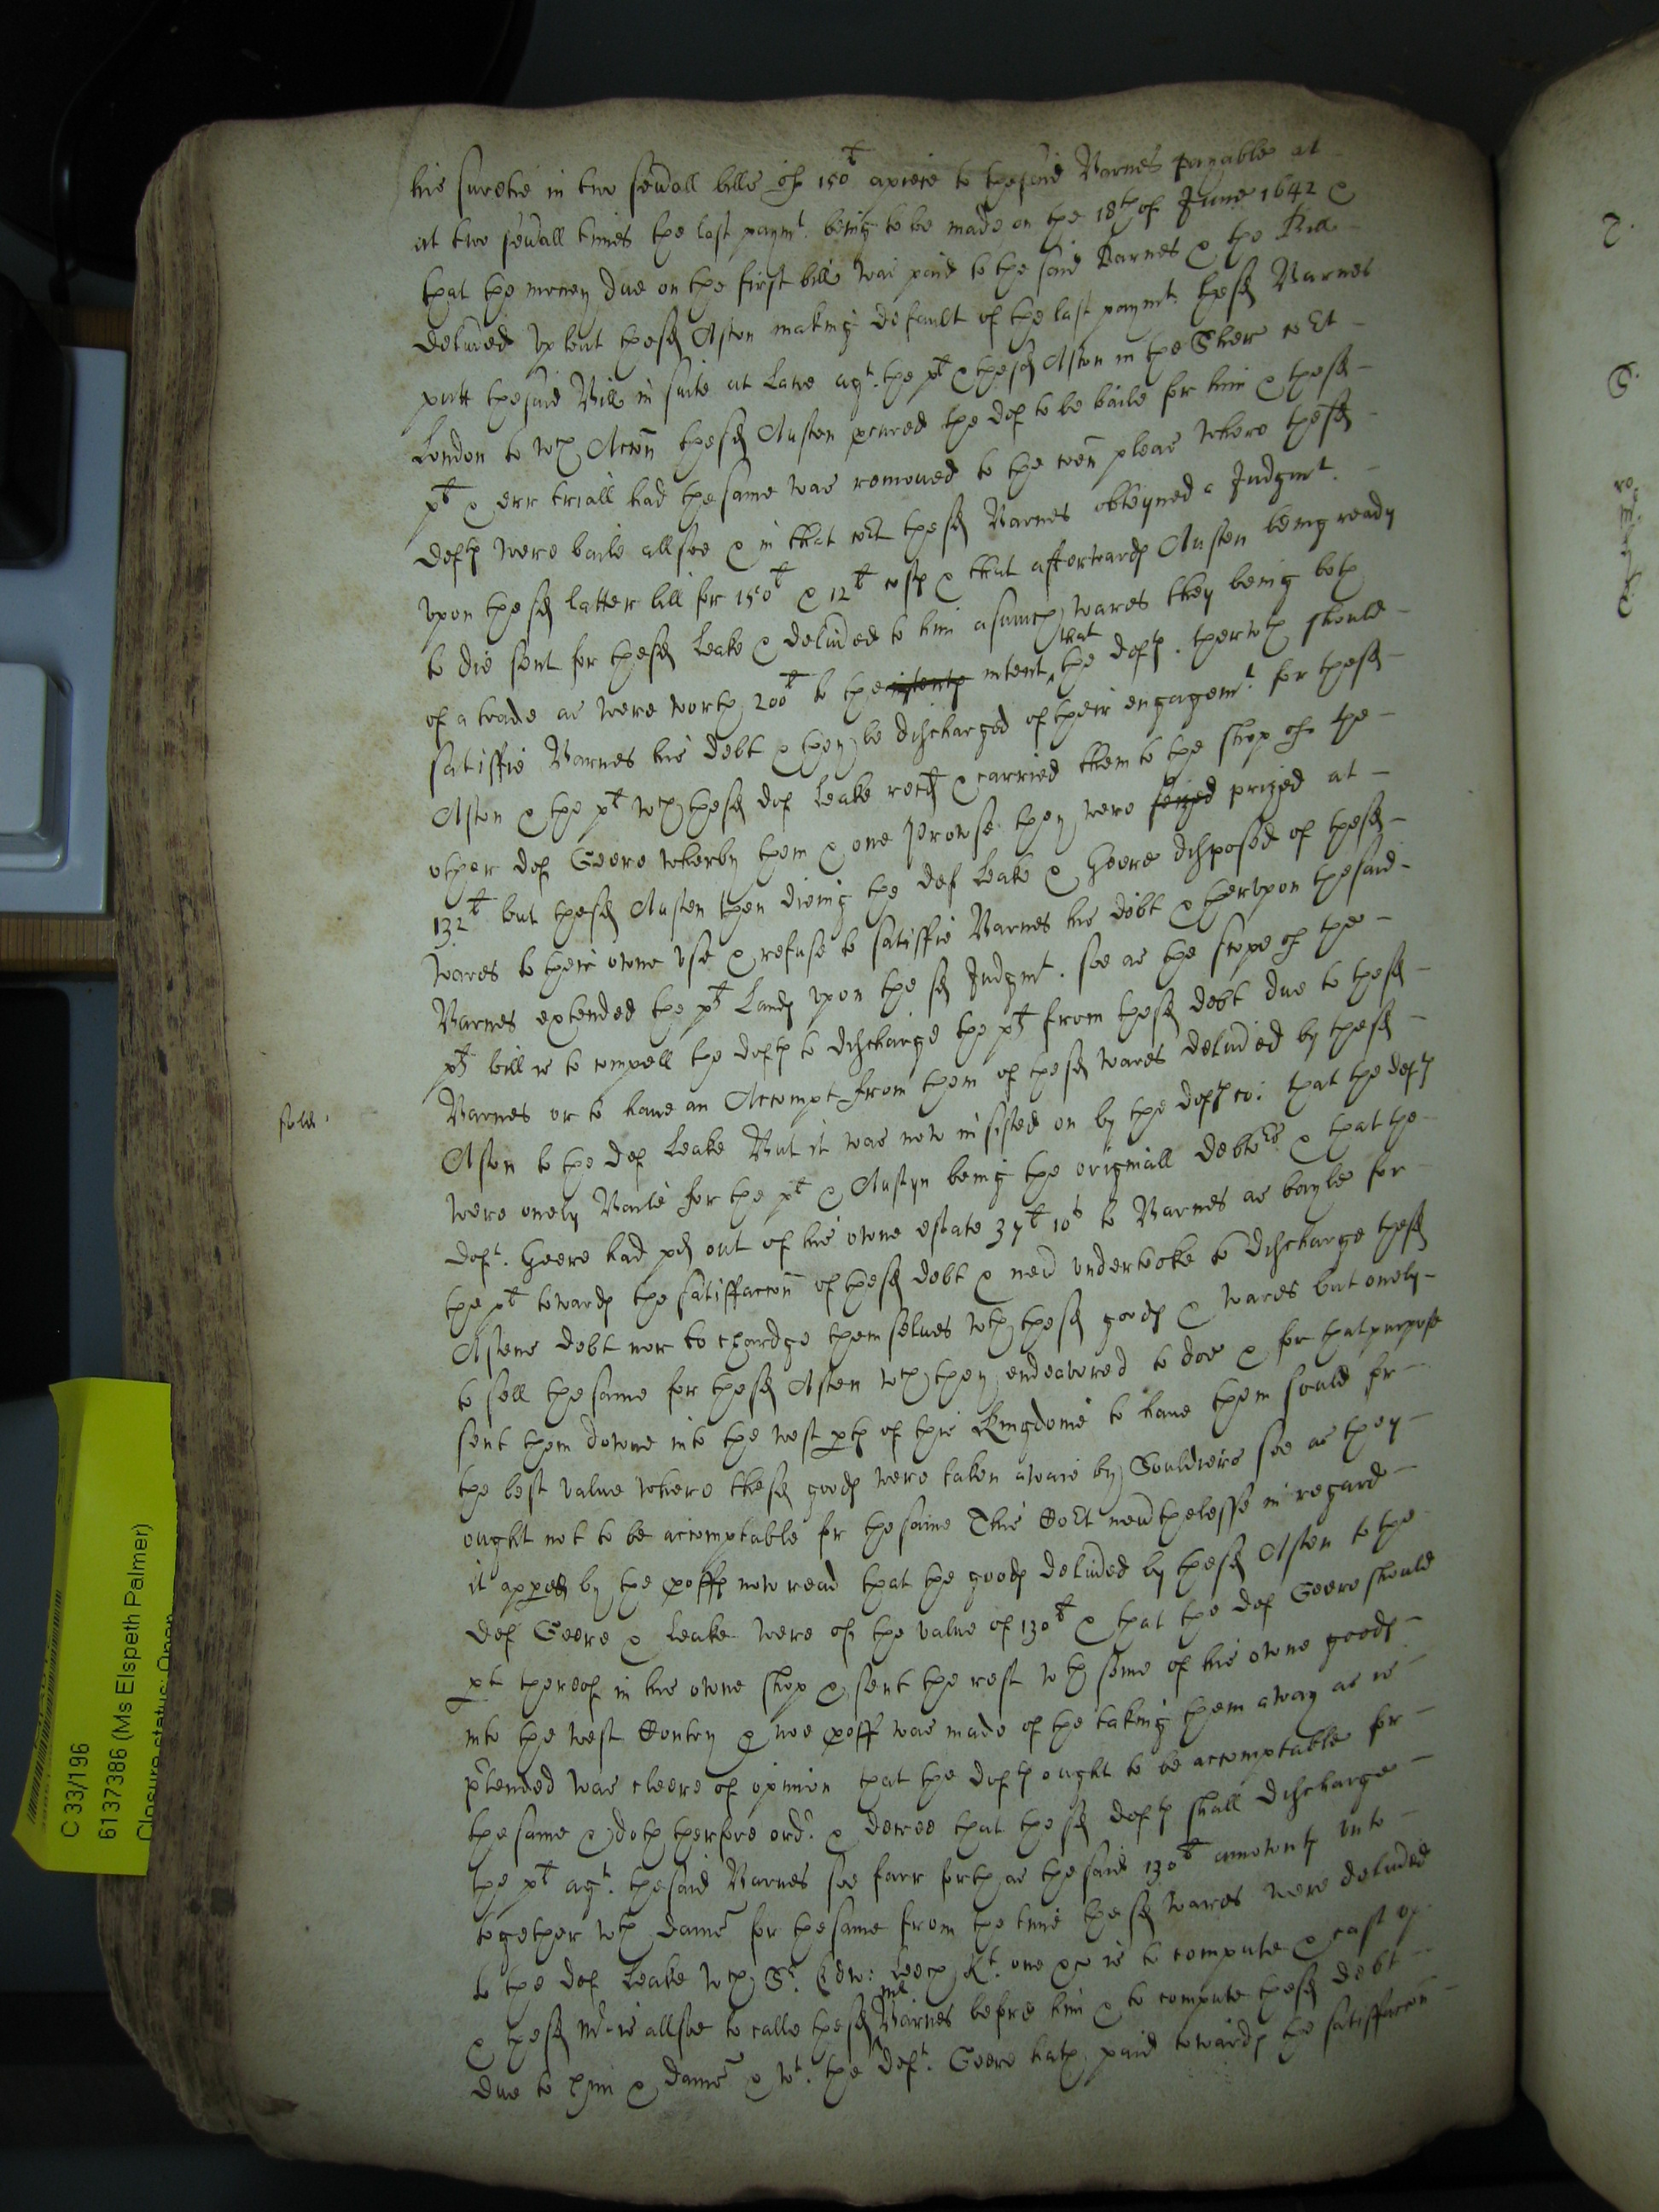 his suretie in two seuall bills of 150l apiece to the said Barnes payable at
at two seuall times the last paymt. being to be made on the 18th of June 1642 &
that the money due on the first bill was paid to the said Barnes & the Bill
deliued vp but the sd Aston making default of the last paymt: the sd Barnes
putt the said Bill in suite at Lawe agt. the plt & the sd Aston in the Sher court
London to wch Accon the sd Austen pcured the def to be baile for him & the sd
plt & ere triall had the same was remoued to the coen pleas where the sd
defts were baile allsoe & in that cort the sd Barnes obteyned a Judgmt.
vpon the sd latter bill for 150l & 12l costs & that afterwards Austen being ready
to die sent for the sd Leake & deliued to him asmuch wares they being both
of a trade as were worth 200l to the intents intent that the defts. therwth should
satisfie Barnes his debt & they be discharged of their engagemt. for the sd
Aston & the plt wch the sd def Leake recd & carried them to the shop of the
other def Geere wherby them & one Prowse they were seized prized at
132l but the sd Austen then dieing the def Leake & Geere disposed of the sd
wares to their owne vse & refuse to satisfie Barnes his debt & thervpon the said
Barnes extended the plts Lands vpon the sd Judgmt. soe as the scope of the
plts bill is to compell the defts to discharge the plt from the sd debt due to the sd
Barnes or to haue an Accompt from them of the sd wares deliued by the sd
Aston to the def Leake But it was now insisted on by the defts co: that the defts
were onely Baile for the plt & Austyn being the originall debtors & that the
deft. Geere had pd out of his owne estate 37l 10s to Barnes as bayle for
the plt towards the satisfaccon of the sd debt & neu vndertooke to discharge the sd
Astens debt nor to chardge themselues wth the sd goods & wares but onely
to sell the same for the sd Asten wch they endeavored to doe & for that purpose
sent them downe into the west pts of this Kingdome to haue them sould for
the best value where the sd goods were taken awaie by Souldiers soe as they
ought not to be accomptable for the same This Court neuthelesse in regard
it appeds by the proffs now read that the goods deliued by the sd Aston to the
def Geere & Leake were of the value of 130l & that the def Geere should
pt thereof in his owne shop & sent the rest wth some of his owne goods
into the west Contry & noe proff was made of the taking them away as is
ptended was cleere of opinion that the defts ought to be accomptable for
the same & doth therfore ordr. & decree that the sd defts shall discharge
the plt agt. the said Barnes soe farr forth as the said 130l amounts vnto
together wth dams for the same from the time the sd wares were deliued
to the def Leake wch Sr. Edw: Leech Kt. one &c is to compute & cast vp
& the sd Mr is allsoe to calle the sd Mr Barnes before him & to compute the sd debt
due to him & dams & wt. the deft. Geere hath paid towards the satisfaccon
sold.
C 33/196
6137386 (Ms Elspeth Palmer)
Closure status: Open